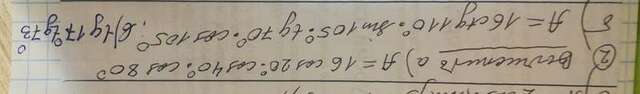 ② Вычислить а) A = 16 cos 20° · cos 40° · cos 80°
б) A = 16 ctg 110° · sin 105° · tg 70° · cos 105° ; в) tg 17° · tg 73°